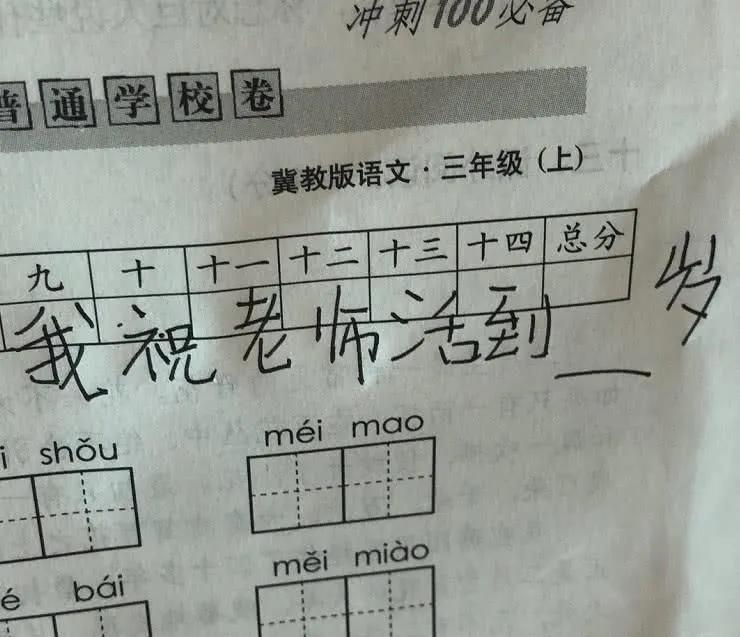 冲刺100必备
普通学校卷
冀教版语文·三年级（上）
九 十 十一 十二 十三 十四 总分
我祝老师活到__岁
shǒu méi mao
bái měi miào